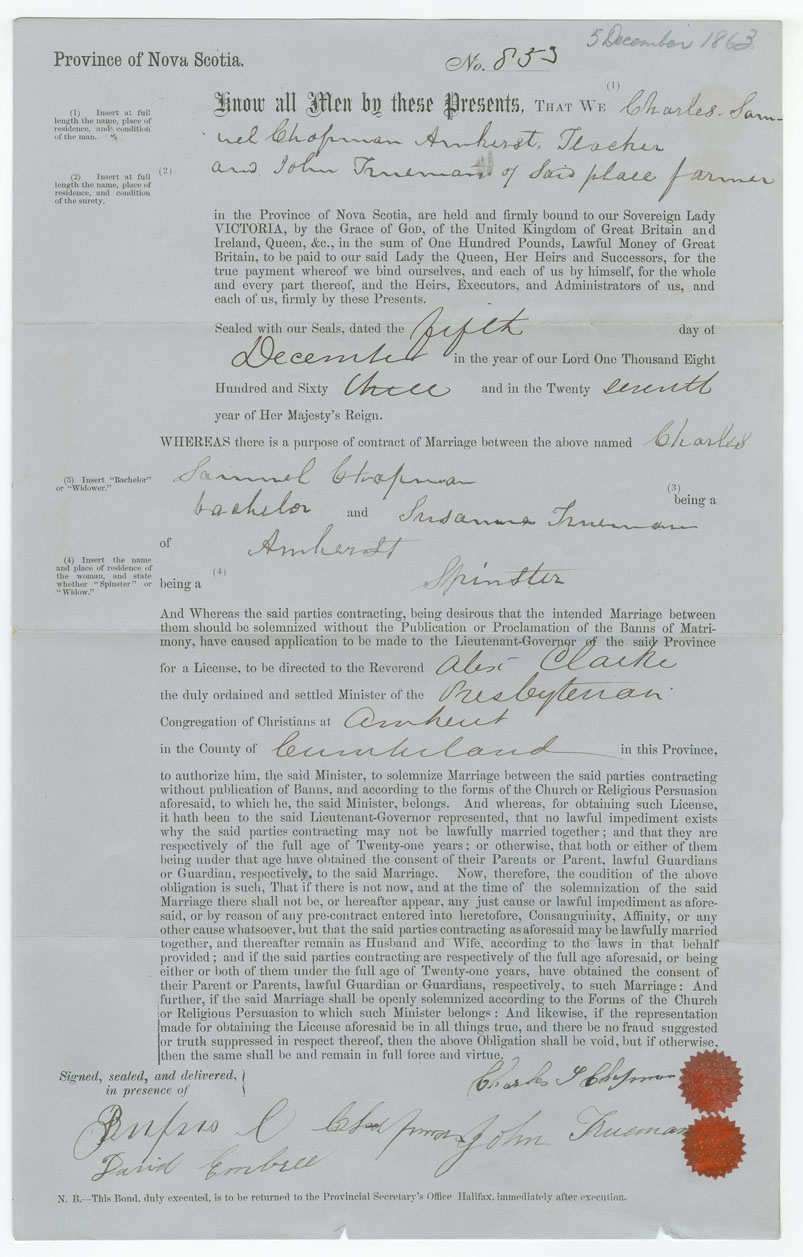 5 December 1863
Province of Nova Scotia.
No. 853
(1) Insert at full
length the name, place of
residence, and condition
of the man.
Know all Men by these Presents, THAT WE (1) Charles Sam-
uel Chapman Amherst, Teacher
(2) and John Trueman of Said place farmer
(2) Insert at full
length the name, place of
residence, and condition
of the surety.
in the Province of Nova Scotia, are held and firmly bound to our Sovereign Lady
VICTORIA, by the Grace of GOD, of the United Kingdom of Great Britain and
Ireland, Queen, &c., in the sum of One Hundred Pounds, Lawful Money of Great
Britain, to be paid to our said Lady the Queen, Her Heirs and Successors, for the
true payment whereof we bind ourselves, and each of us by himself, for the whole
and every part thereof, and the Heirs, Executors, and Administrators of us, and
each of us, firmly by these Presents.
Sealed with our Seals, dated the fifth day of
December in the year of our Lord One Thousand Eight
Hundred and Sixty three and in the Twenty seventh
year of Her Majesty's Reign.
WHEREAS there is a purpose of contract of Marriage between the above named Charles
Samuel Chapman (3) being a
(3) Insert "Bachelor"
or "Widower."
bachelor and Susanna Trueman
of Amherst
(4) Insert the name
and place of residence of
the woman, and state
whether "Spinster" or
"Widow."
being a (4) Spinster
And Whereas the said parties contracting, being desirous that the intended Marriage between
them should be solemnized without the Publication or Proclamation of the Banns of Matri-
mony, have caused application to be made to the Lieutenant-Governor of the said Province
for a License, to be directed to the Reverend Alexr Clarke
the duly ordained and settled Minister of the Presbyterian
Congregation of Christians at Amherst
in the County of Cumberland in this Province,
to authorize him, the said Minister, to solemnize Marriage between the said parties contracting
without publication of Banns, and according to the forms of the Church or Religious Persuasion
aforesaid, to which he, the said Minister, belongs. And whereas, for obtaining such License,
it hath been to the said Lieutenant-Governor represented, that no lawful impediment exists
why the said parties contracting may not be lawfully married together; and that they are
respectively of the full age of Twenty-one years; or otherwise, that both or either of them
being under that age have obtained the consent of their Parents or Parent, lawful Guardians
or Guardian, respectively, to the said Marriage. Now, therefore, the condition of the above
obligation is such, That if there is not now, and at the time of the solemnization of the said
Marriage there shall not be, or hereafter appear, any just cause or lawful impediment as afore-
said, or by reason of any pre-contract entered into heretofore, Consanguinity, Affinity, or any
other cause whatsoever, but that the said parties contracting as aforesaid may be lawfully married
together, and thereafter remain as Husband and Wife, according to the laws in that behalf
provided; and if the said parties contracting are respectively of the full age aforesaid, or being
either or both of them under the full age of Twenty-one years, have obtained the consent of
their Parent or Parents, lawful Guardian or Guardians, respectively, to such Marriage: And
further, if the said Marriage shall be openly solemnized according to the Forms of the Church
or Religious Persuasion to which such Minister belongs: And likewise, if the representation
made for obtaining the License aforesaid be in all things true, and there be no fraud suggested
or truth suppressed in respect thereof, then the above Obligation shall be void, but if otherwise,
then the same shall be and remain in full force and virtue.
Signed, sealed, and delivered,
in presence of
Charles S Chapman
Rufus C Chapman
John Trueman
David Embree
N. B.—This Bond, duly executed, is to be returned to the Provincial Secretary's Office Halifax, immediately after execution.